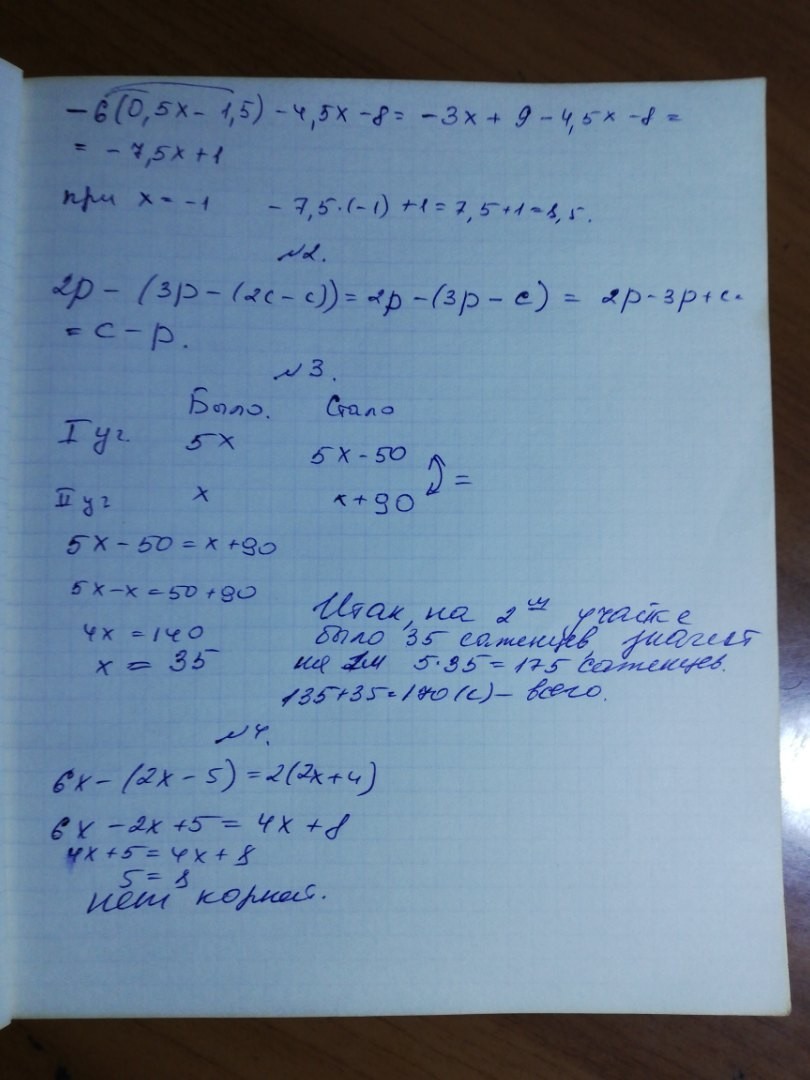 -6(0,5x-1,5)-4,5x-8= -3x+9-4,5x-8=
= -7,5x+1
при x=-1 -7,5·(-1)+1=7,5+1=8,5.
№2.
2p-(3p-(2c-c))=2p-(3p-c)= 2p-3p+c=
=c-p.
№3.
Было. Стало
I уг 5x 5x-50
=
II уг x x+90
5x-50=x+90
5x-x=50+90
4x=140
x=35
Итак, на 2ом участке
было 35 саженцев, значит
на 1м 5·35=175 саженцев.
135+35=170(с)- всего.
№4.
6x-(2x-5)=2(2x+4)
6x-2x+5=4x+8
4x+5=4x+8
5=8
нет корней.